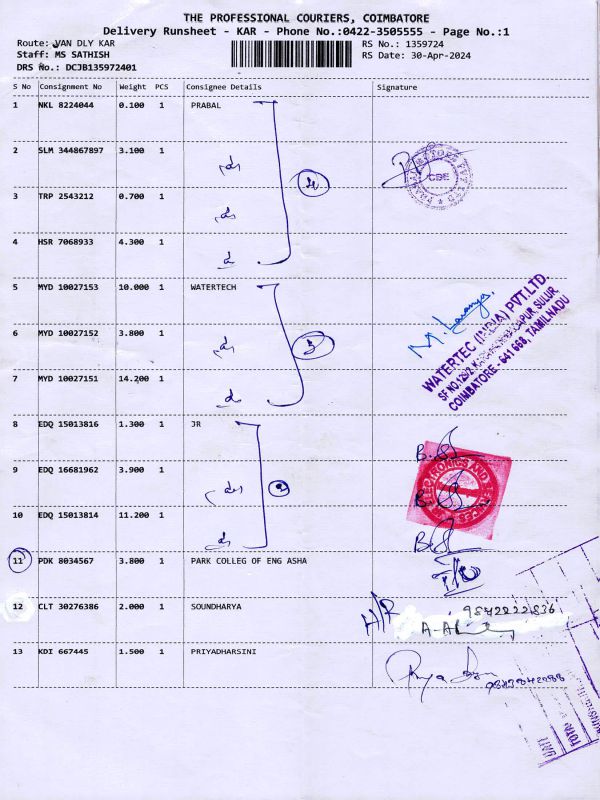 THE PROFESSIONAL COURIERS, COIMBATORE
Delivery Runsheet - KAR - Phone No.:0422-3505555 - Page No.:1
Route: VAN DLY KAR
RS No.: 1359724
Staff: MS SATHISH
RS Date: 30-Apr-2024
DRS No.: DCJB135972401
S No Consignment No Weight PCS Consignee Details Signature
1 NKL 8224044 0.100 1 PRABAL
2 SLM 344867897 3.100 1
CBE
3 TRP 2543212 0.700 1
4 HSR 7068933 4.300 1
5 MYD 10027153 10.000 1 WATERTECH
M. Lavanya
6 MYD 10027152 3.800 1
3
WATERTEC (INDIA) PVT.LTD.
COIMBATORE - 641 668, TAMILNADU
7 MYD 10027151 14.200 1
8 EDQ 15013816 1.300 1 JR
9 EDQ 16681962 3.900 1
10 EDQ 15013814 11.200 1
11 PDK 8034567 3.800 1 PARK COLLEG OF ENG ASHA
12 CLT 30276386 2.000 1 SOUNDHARYA
H/R
9842222836
13 KDI 667445 1.500 1 PRIYADHARSINI
Priya